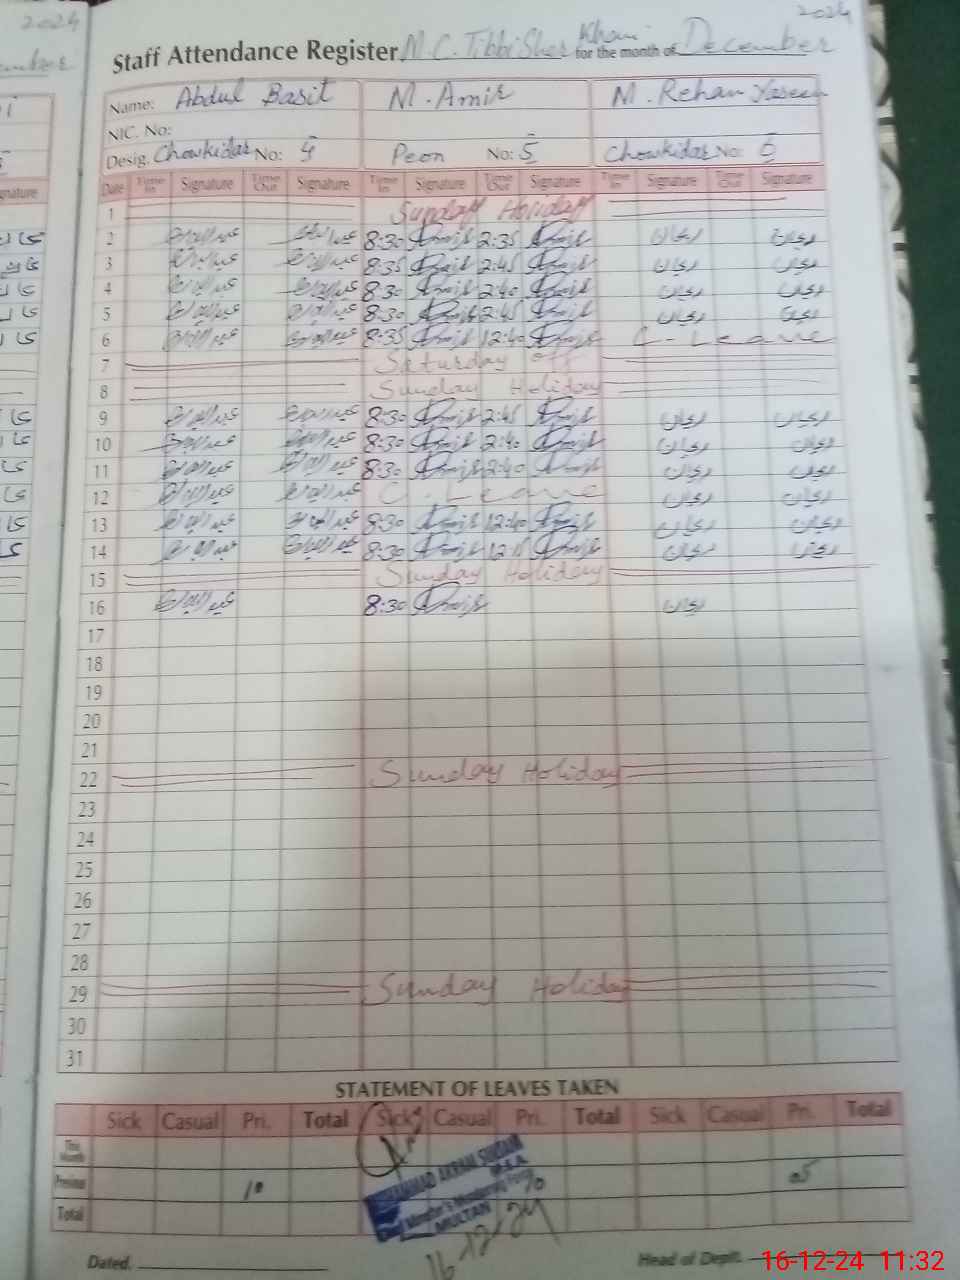 2024
2024
Staff Attendance Register M.C. Tibbi Sher Khan for the month of December
Name: Abdul Basit M. Amir M. Rehan Yaseen
NIC. No:
Desig. Chowkidar No: 4 Peon No: 5 Chowkidar No: 6
Date Time In Signature Time Out Signature Time In Signature Time Out Signature Time In Signature Time Out Signature
1 Sunday Holiday
2 8:30 Amir 2:35 Amir ریحان ریحان
3 8:35 Amir 2:45 Amir ریحان ریحان
4 8:30 Amir 2:40 Amir ریحان ریحان
5 8:30 Amir 2:45 Amir ریحان ریحان
6 8:35 Amir 12:40 Amir C-Leave
7 Saturday off
8 Sunday Holiday
9 8:30 Amir 2:45 Amir ریحان ریحان
10 8:30 Amir 2:40 Amir ریحان ریحان
11 8:30 Amir 2:40 Amir ریحان ریحان
12 C-Leave ریحان ریحان
13 8:30 Amir 12:40 Amir ریحان ریحان
14 8:30 Amir Amir ریحان ریحان
15 Sunday Holiday
16 8:30 Amir ریحان
17
18
19
20
21
22 Sunday Holiday
23
24
25
26
27
28
29 Sunday Holiday
30
31
STATEMENT OF LEAVES TAKEN
Sick Casual Pri. Total Sick Casual Pri. Total Sick Casual Pri. Total
This Month
Previous 10 05
Total
MULTAN
16-12-24
Dated. Head of Deptt.
16-12-24 11:32